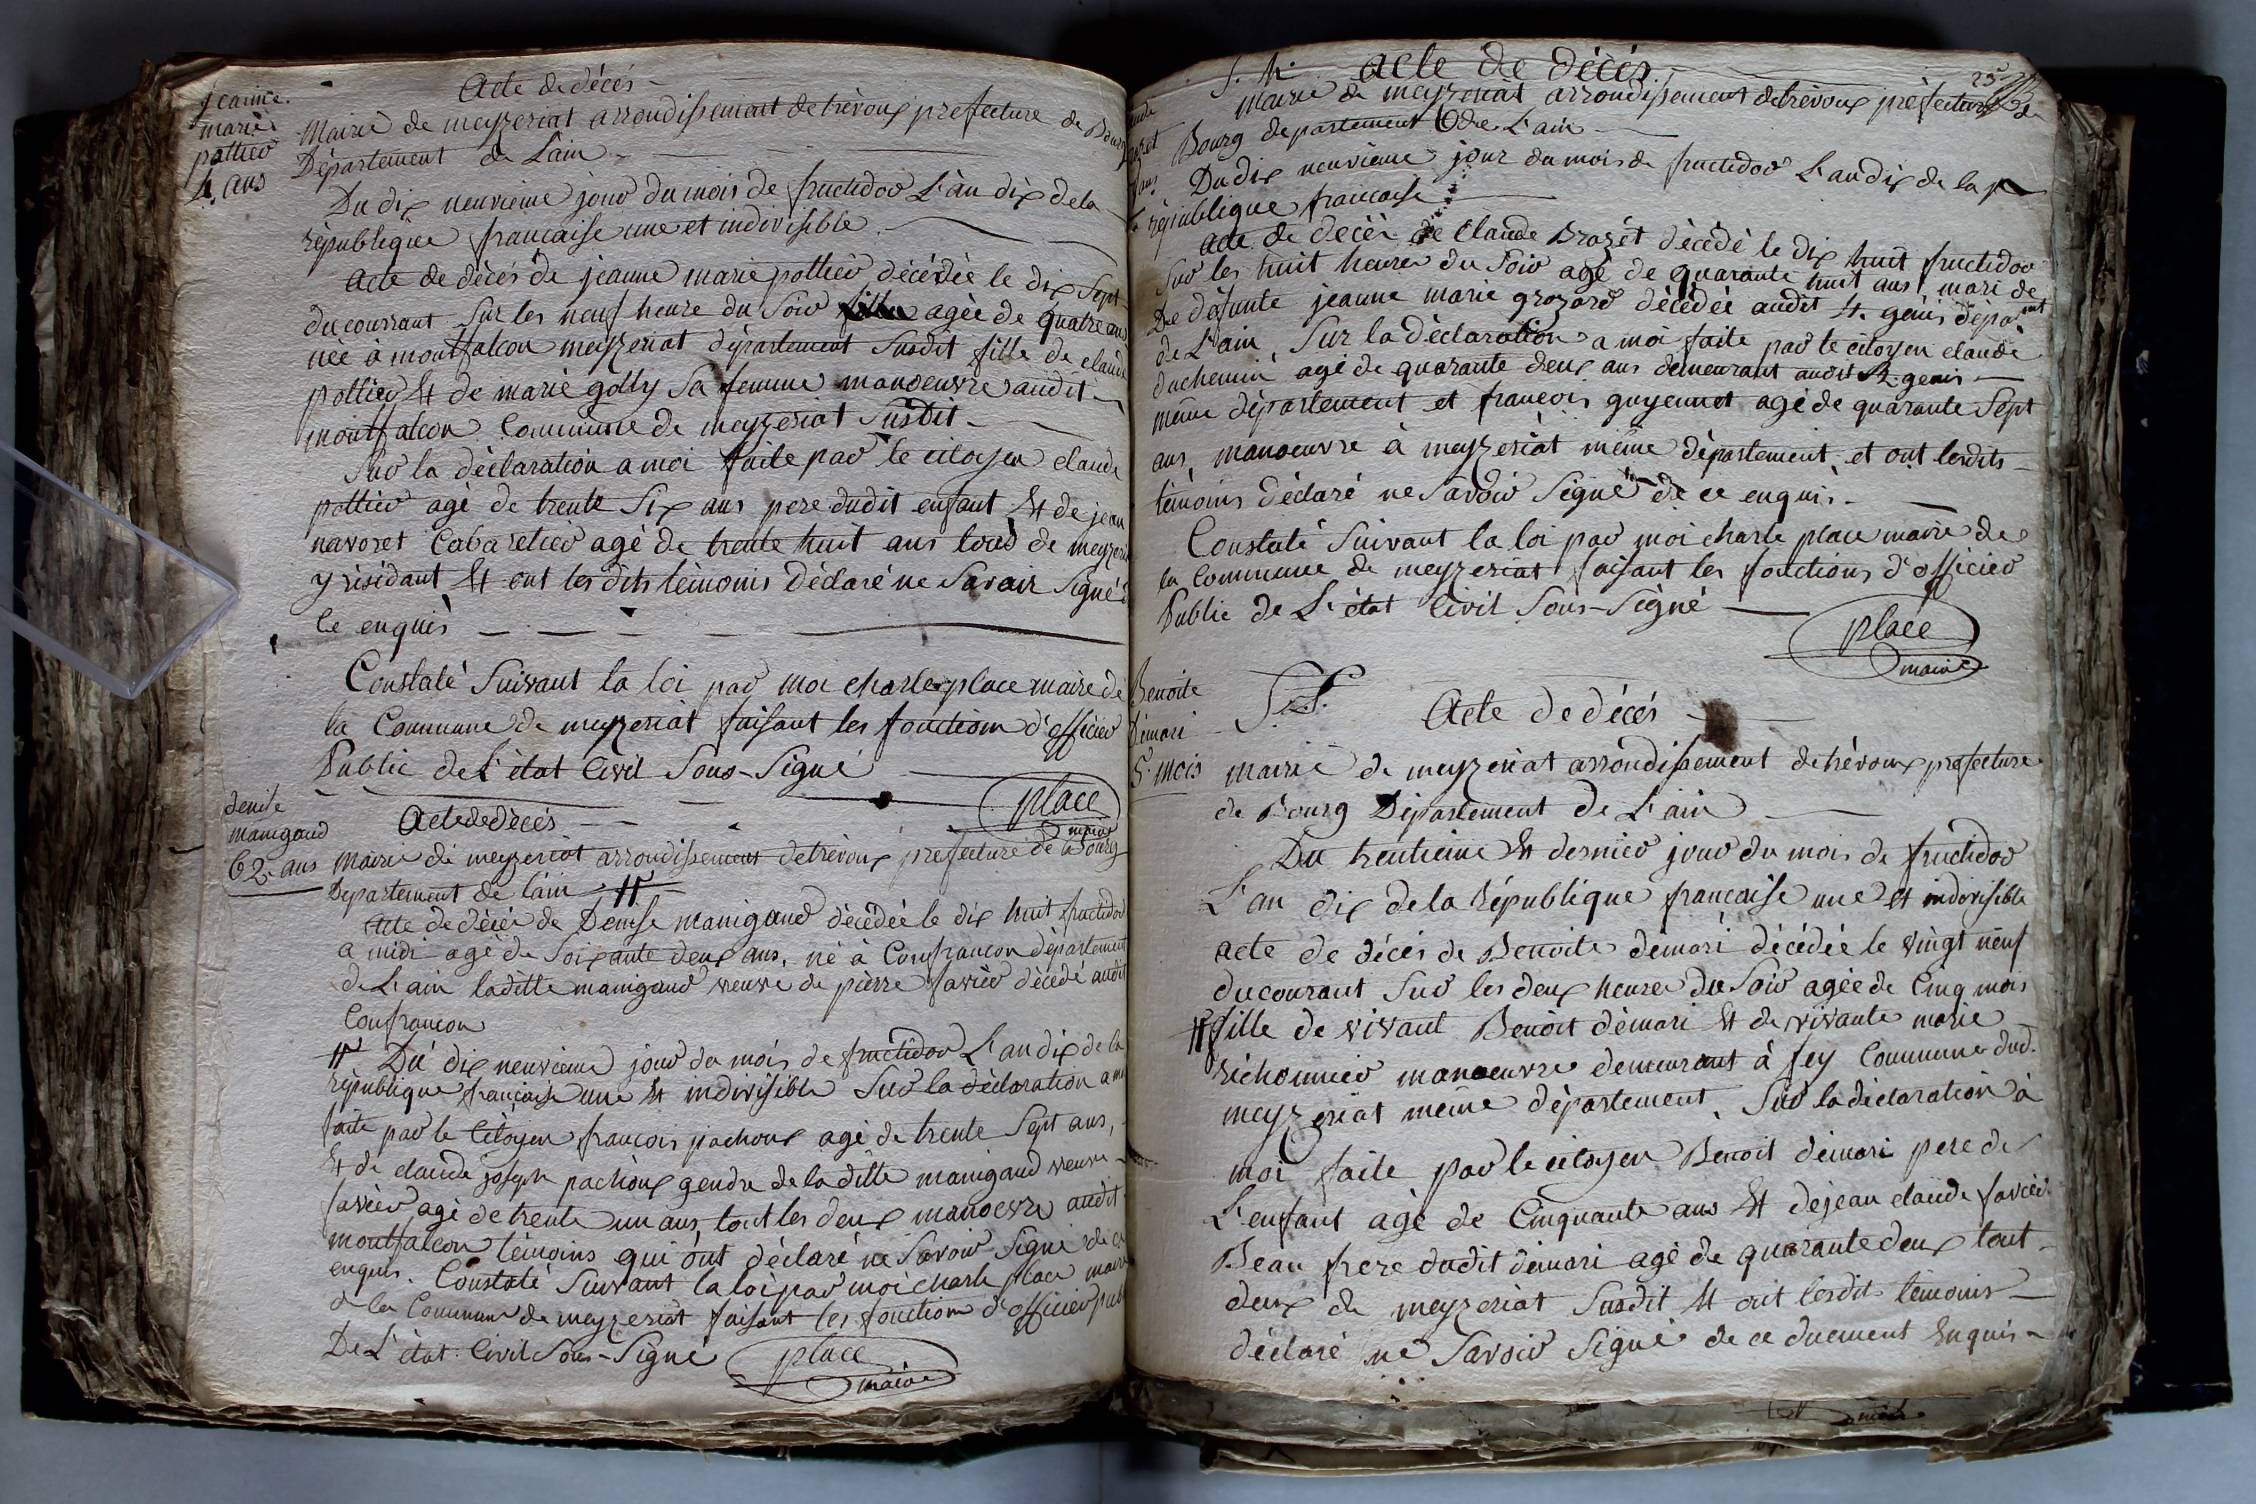 Acte de décés
jeanne
marie
pottier
4. ans
Mairie de meyzeriat arrondissement de trévoux prefecture de Bourg
Département de L'ain
Du dix neuvieme jour du mois de fructidor L'an dix de la
république francaise une et indivisible
acte de décés de jeanne marie pottier décédée le dix Sept
du courrant Sur les neuf heure du Soir agée de quatre ans
née à montfalcon meyzeriat département Susdit fille de claude
pottier Et de marie golly Sa femme manoeuvre audit
montfalcon Commune de meyzeriat Susdit
Sur la déclaration a moi faite par le citoyen claude
pottier agé de trente Six ans pere dudit enfant Et de jean
navoret Cabaretier agé de trente huit ans tous de meyzeria
y résidant Et ont les dits témoins Déclaré ne Savoir Signé d
Ce enquis
Constaté Suivant la loi par moi charle place maire de
la Commune de meyzeriat faisant les fonction d'officier
Public de L'état Civil Sous-Signé
place
maire
denise
manigaud
62. ans
Acte de décés
Mairie de meyzeriat arrondissement de trévoux prefecture de Bourg
Département de L'ain #
acte de décés de Denise manigaud décédée le dix huit fructidor
a midi agé de Soixante deux ans, né à Confrancon département
de L'ain laditte manigaud veuve de pierre favier décédé audit
Confrancon
# Du dix neuvieme jour du mois de fructidor L'an dix de la
république francaise une Et indivisible Sur la déclaration a moi
faite par le Citoyen francois pachoux agé de trente Sept ans,
Et de claude joseph pachoux gendre de laditte manigaud veuve
favier agé de trente un ans, tout les deux manoevre audit
montfalcon témoins qui ont déclaré ne Savoir Signé de ce
enquis. Constaté Suivant la loi par moi charle place maire
de la Commune de meyzeriat faisant les fonction d'officier pub
De L'état Civil Sous-Signé
place
maire
S. h. acte de décés
25
Mairie de meyzeriat arrondissement de trévoux préfecture de
Bourg département de L'ain
Du dix neuvieme jour du mois de fructidor L'an dix de la
république francaise
acte de décés de Claude Brazet décédé le dix huit fructidor
Sur les huit heures du Soir agé de quarante huit ans mari de
De défunte jeanne marie grozard décédée audit St. génis départ
de L'ain, Sur la déclaration a moi faite par le citoyen claude
duchemin agé de quarante deux ans demeurant audit St. genis
même département et francois guyennot agé de quarante Sept
ans, manoeuvre à meyzeriat même département et ont lesdits
témoins déclaré ne Savoir Signé de ce enquis.
Constaté Suivant la loi par moi charle place maire de
la Commune de meyzeriat faisant les fonctions d'officier
Public de L'état Civil Sous-Signé
place
maire
Benoite
démari
5. mois
Acte de décés
mairie de meyzeriat arrondissement de trévoux prefecture
de Bourg Département de L'ain
Du trentieme Et dernier jour du mois de fructidor
L'an dix de la République francaise une et indivisible
acte de décés de Benoite démari décédée le vingt neuf
du courant Sur les deux heures du Soir agée de Cinq mois
fille de vivant Benoit démari Et de vivante marie
richonnier manoeuvre demeurant à fey Commune dud.
meyzeriat même département, Sur la déclaration à
moi faite par le citoyen Benoit démari pere de
L'enfant agé de Cinquante ans Et de jean claude favier
Beau frere dudit démari agé de quarante deux tout
deux de meyzeriat Susdit Et ont lesdits témoins
déclaré ne Savoir Signé de ce duement Enquis